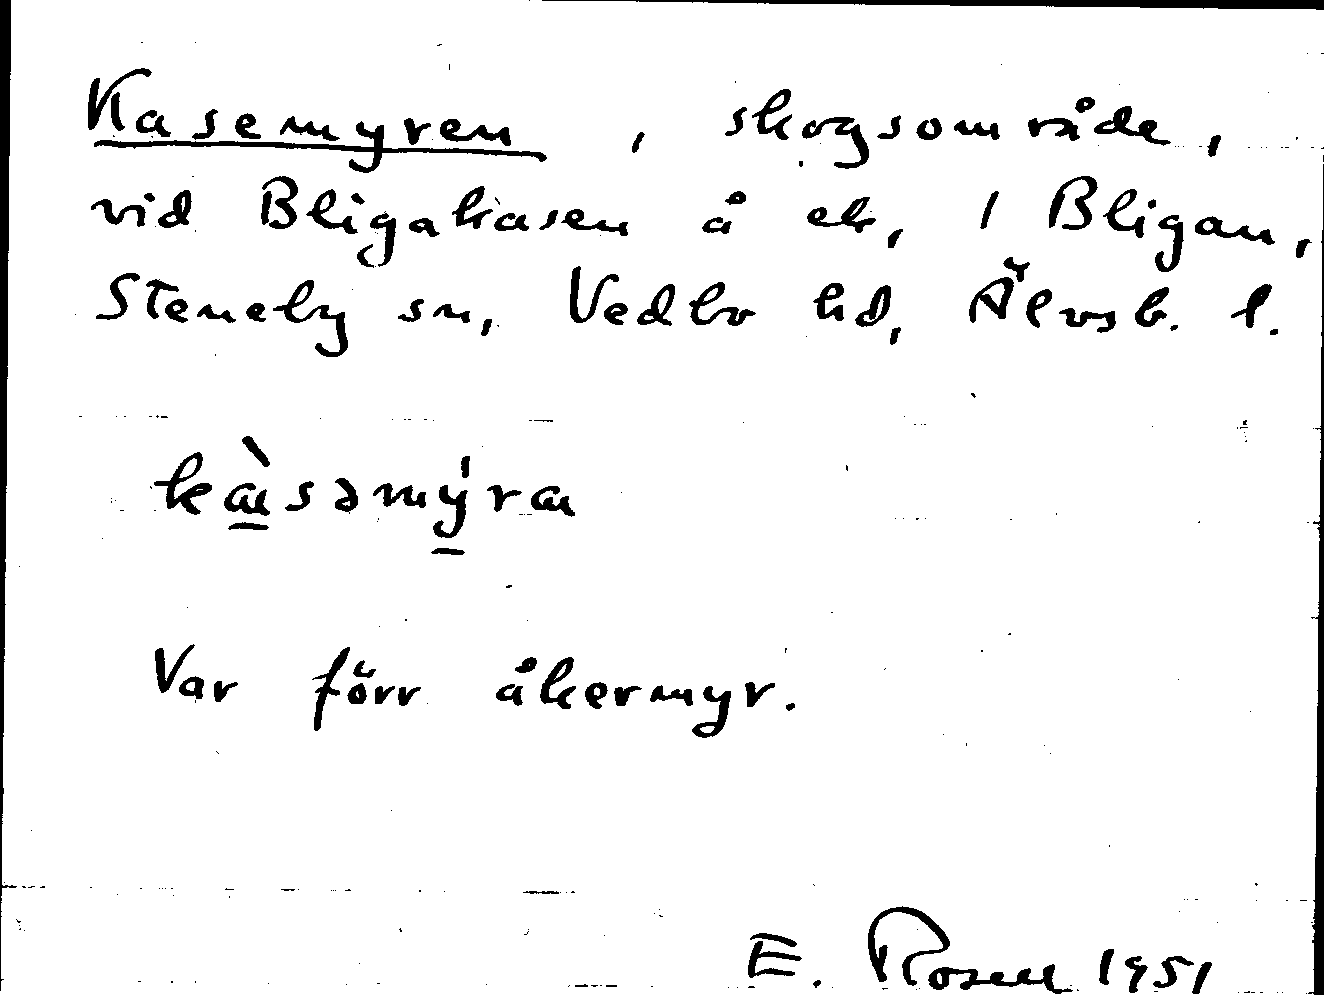 Kasemyren, skogsområde,
vid Bligakasen å ek, 1 Bligan,
Steneby sn, Vedbo hd, Älvsb. l.
kàsəmýra
Var förr åkermyr.
E. Rosell 1951